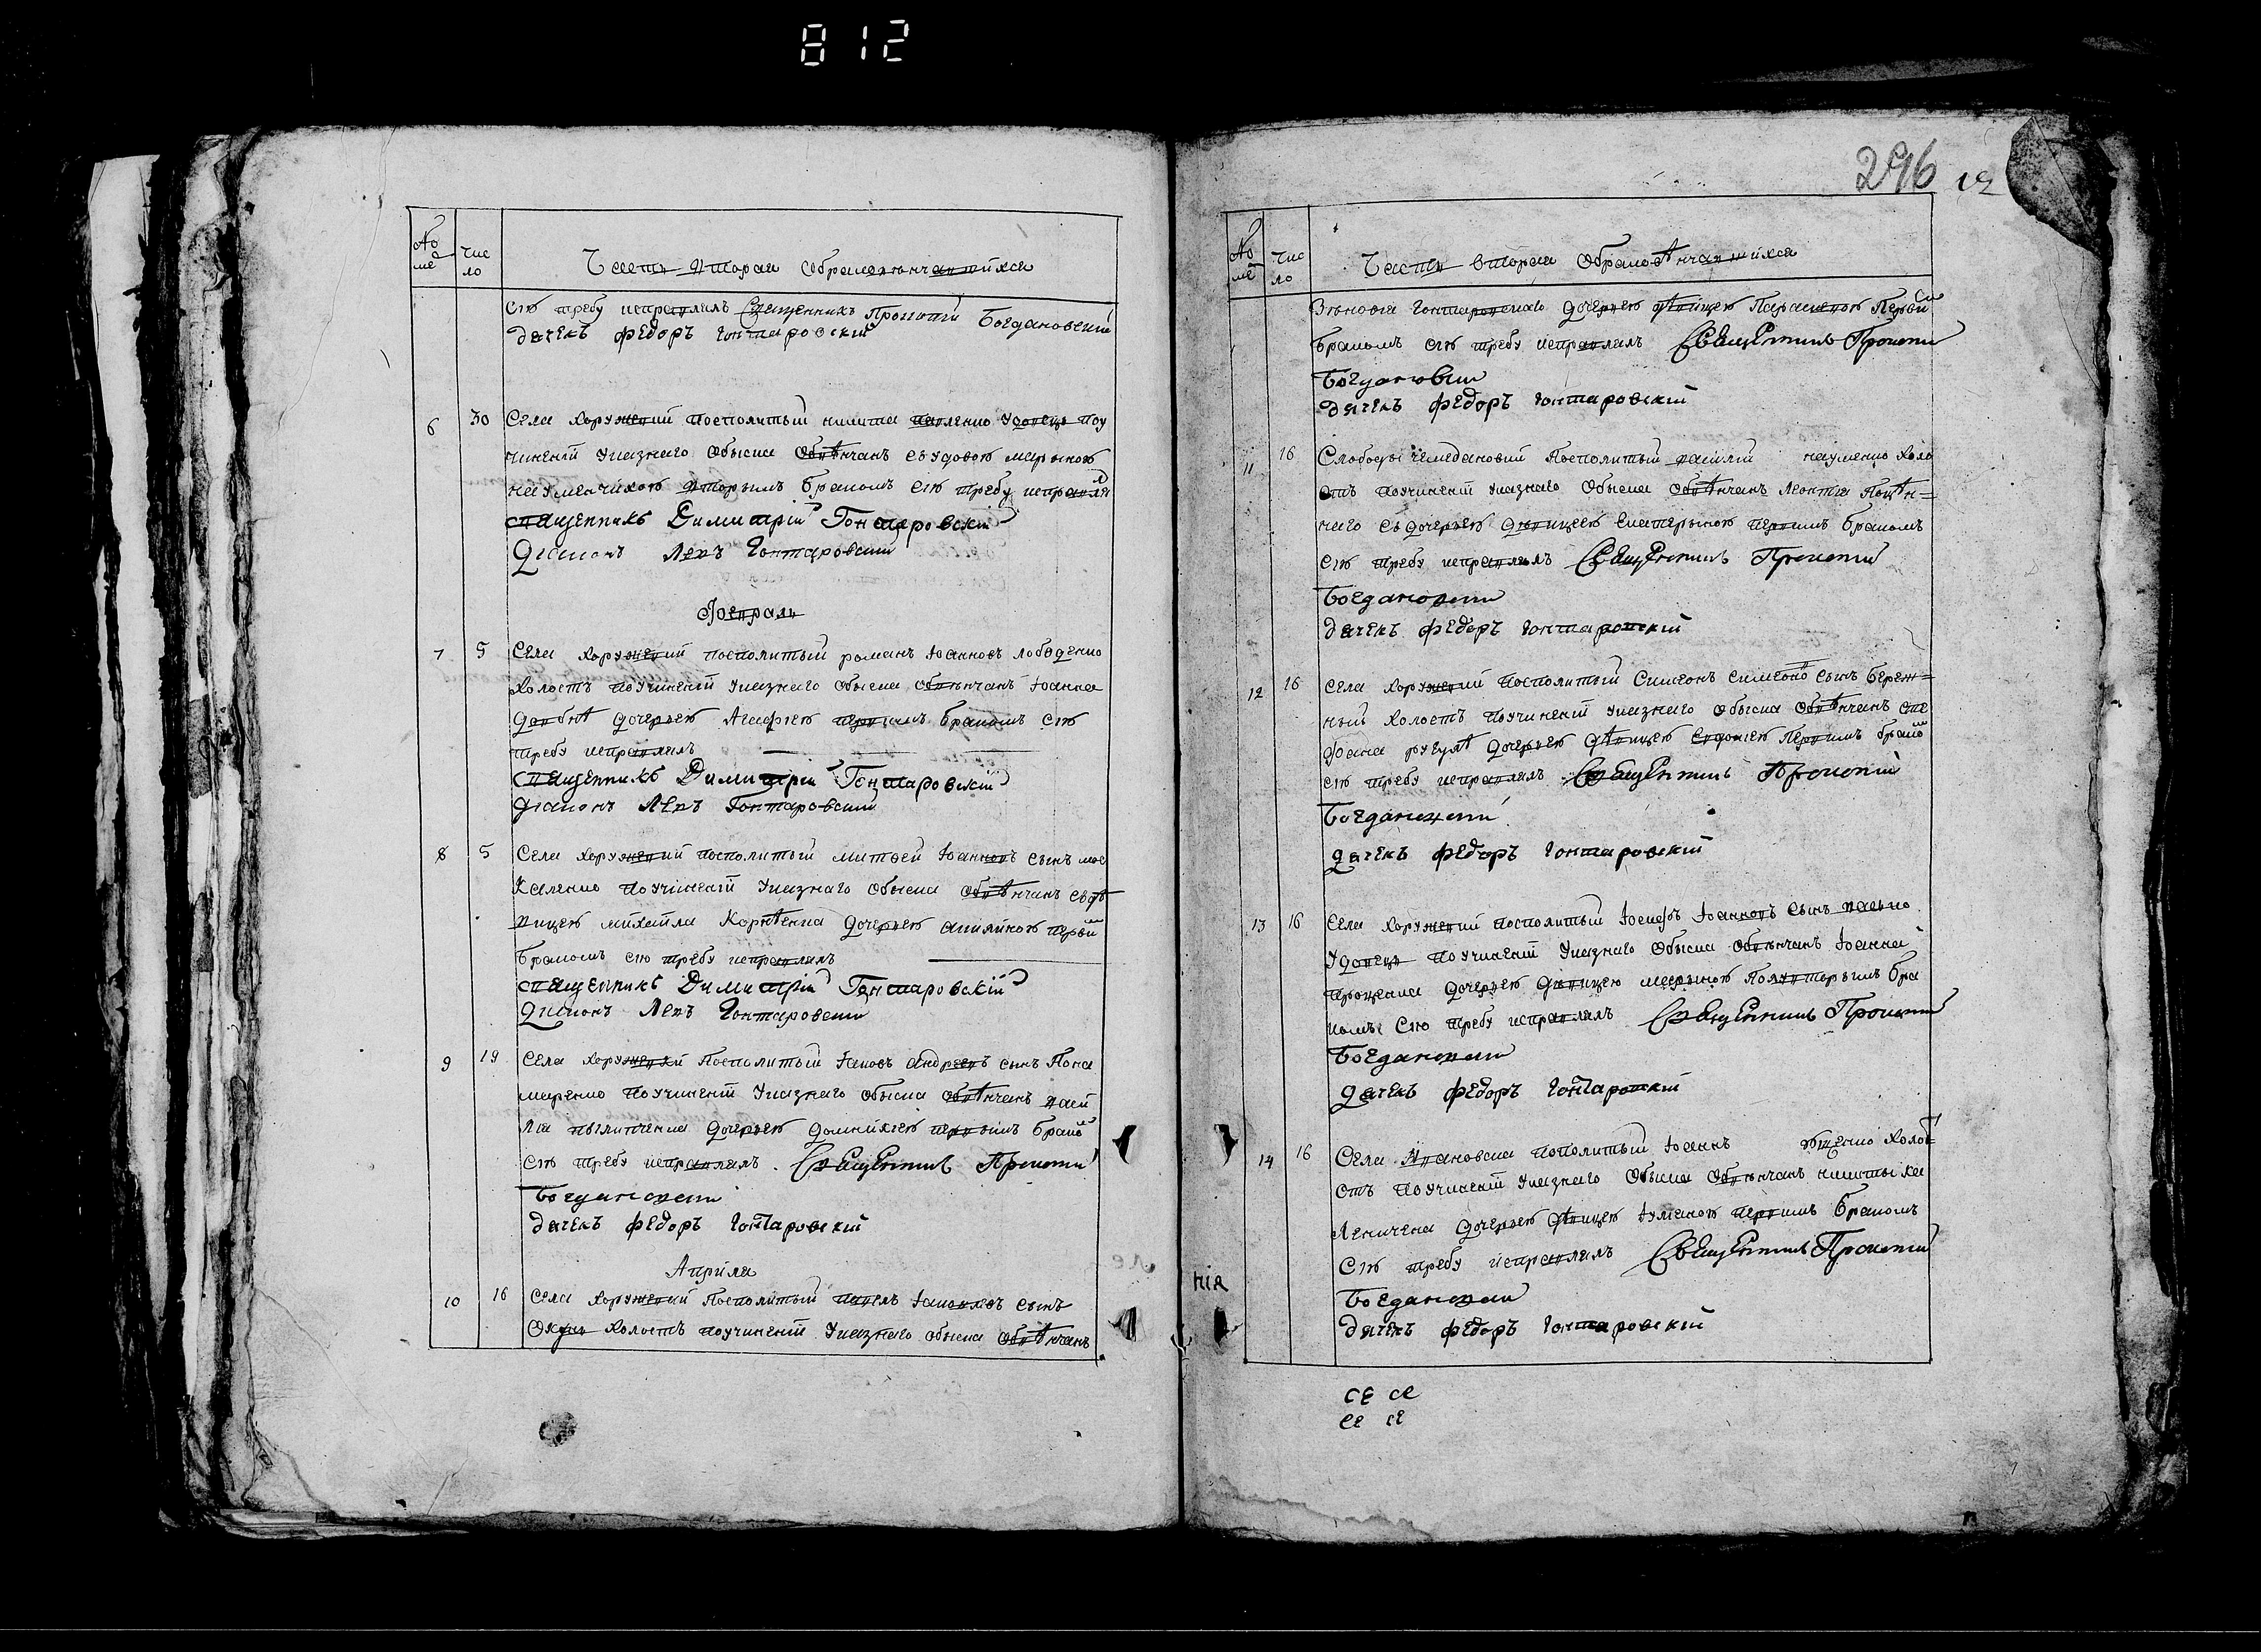 812
296
Но ме
Чис ло
Часть вторая обраковѣнчавшихся
сию требу исправлялъ Священникъ Прокопій Богдановскій
дячекъ федоръ Гонтаровскій
6 30 Села хоружевки посполитый никита павленко удовецъ поу
чиненій указнаго обыска обвѣнчанъ съ удовою марыною
науменчихою вторымъ бракомъ сию требу исправля
священникъ Димитрій Гонтаровскій
Діаконъ Левъ Гонтаровскій
Февраль
7 5 Села хоружевки посполитый романъ Іоанновъ лободенко
холостъ поучиненій указнаго обыска обвѣнчанъ Іоанна
дочерью Агафіею первимъ бракомъ сию
требу исправлялъ
священникъ Димитрій Гонтаровскій
діаконъ Левъ Гонтаровскій
8 5 Села хоружевки посполитый матфей Іоанновъ сынъ мос
каленко поучиненій указнаго обыска обвѣнчанъ съ дѣ
вицею михайла Корнѣенка дочерью акилиною первы
бракомъ сию требу исправлялъ
священникъ Димитрій Гонтаровскій
Діаконъ Левъ Гонтаровскій
9 19 Села хоружевки посполитый Іаковъ андреевъ сынъ Пона
маренко поучиненій указнаго обыска обвѣнчанъ васи
лія пилипченка дочерью домникіею первимъ брако
сию требу исправлялъ Священникъ Прокопій
Богдановскій
дячекъ федоръ Гонтаровскій
Апріля
10 16 Села хоружевки посполитый павелъ Іаковлевъ сынъ
холостъ поучиненій указнаго обыска обвѣнчанъ
Но ме
Чис ло
Часть вторая обраковѣнчавшихся
Зѣновія Гонтаровскаго дочерью дѣвицею Параскевою Перви
бракомъ сию требу исправлялъ Священникъ Прокопи
Богдановскій
дячекъ федоръ Гонтаровскій
11 16 Слободы чемодановки посполитый василій науменко холо
стъ поучиненій указнаго обыска обвѣнчанъ Леонтія
наго съ дочерью дѣвицею екатерыною первимъ бракомъ
сию требу исправлялъ Священникъ Прокопій
Богдановскій
дячекъ федоръ Гонтаровскій
12 16 Села хоружевки посполитый Симеонъ симеоно сынъ береж=
ный холостъ поучиненій указнаго обыска обвѣнчанъ сте
фана дочерью дѣвицею евдокіею первимъ брако
сию требу исправлялъ Священникъ Прокопій
Богдановскій
дячекъ федоръ Гонтаровскій
13 16 Села хоружевки посполитый Іосифъ Іоанновъ сынъ васько
удовецъ поучиненій указнаго обыска обвѣнчанъ Іоанна
проценка дочерью дѣвицею марыною полувторымъ бра
комъ сию требу исправлялъ Священникъ Прокопій
Богдановскій
дячекъ федоръ Гонтаровскій
14 16 Села Ивановска посполитый Іоаннъ холо=
стъ поучиненій указнаго обыска обвѣнчанъ никиты ха
дочерью дѣвицею первимъ бракомъ
сию требу исправлялъ Священникъ Прокопій
Богдановскій
дячекъ федоръ Гонтаровскій
нія
се се
се се